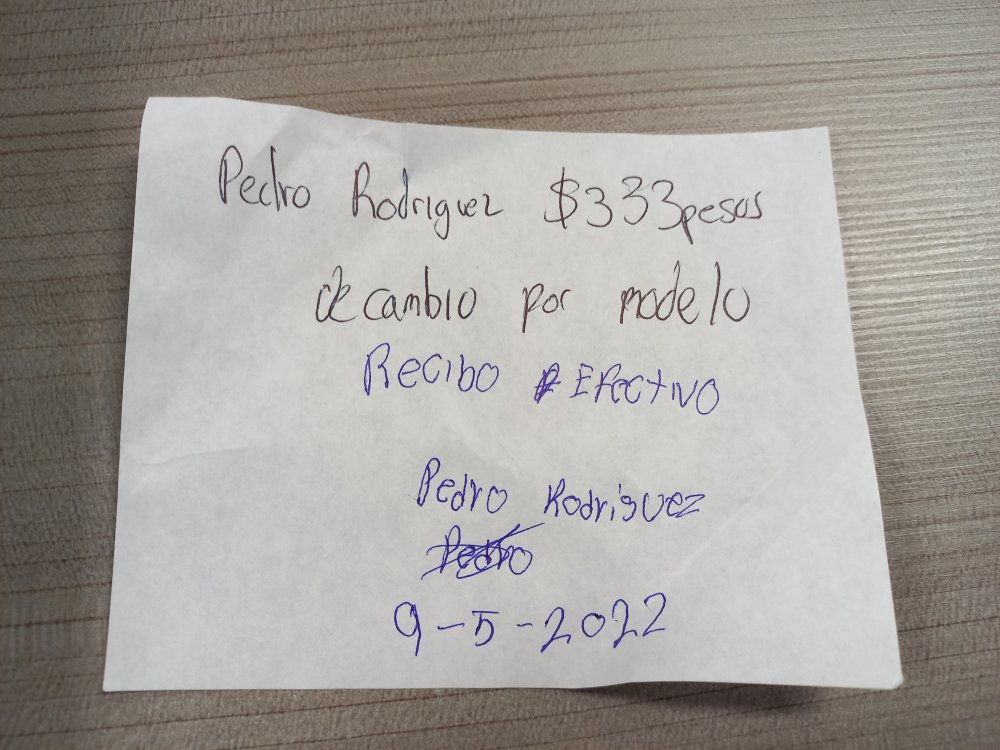 Pedro Rodriguez $333 pesos
de cambio por modelo
Recibo Efectivo
Pedro Rodriguez
Pedro
9-5-2022